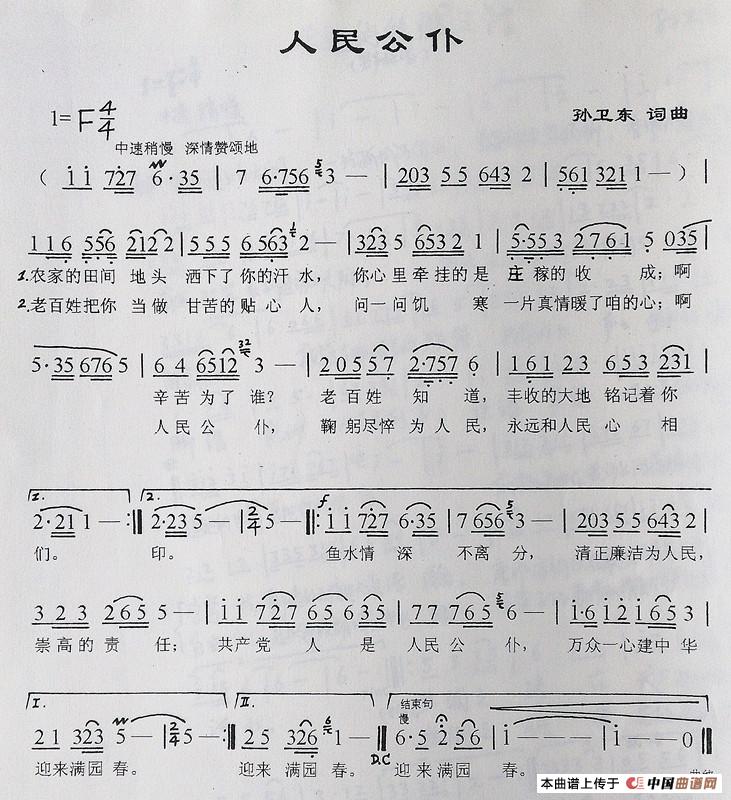 人民公仆
1=F4/4
孙卫东 词曲
中速稍慢 深情赞颂地
( i i 727 6·35 | 7 6·756 3 — | 203 55 643 2 | 561 321 1 — ) |
116 556 2122 | 555 6563 2 — | 3235 6532 1 | 5·553 2761 5 035 |
1.农家的田间 地头 洒下了你的汗 水, 你心里牵挂的是 庄 稼的 收 成; 啊
2.老百姓把你 当做 甘苦的贴 心 人, 问一问饥 寒 一片真情暖了咱的心; 啊
5·35 676 5 | 64 6512 3 — | 20557 2·757 6 | 161 23 653 231 |
辛苦为了 谁? 老 百姓 知 道, 丰收的大地 铭记着你
人民公 仆, 鞠 躬尽悴 为 人 民, 永远和人民 心 相
1. 2. f
2·21 1 — :|| 2·23 5 — | 2/4 5 — ||: i i 727 6·35 | 7 656 3 — | 203 55 643 2 |
们。 印。 鱼水情 深 不离 分, 清正廉洁为人民,
323 265 5 — | i i 727 65 635 | 77 765 6 — | i·6 i2 i65 3 |
崇高的 责 任; 共产党 人 是 人民 公 仆, 万众一心建中 华
I. II. 结束句
慢
21 323 5 — | 2/4 5 — :|| 25 326 1 — || D.C 6·5 2 56 | i — | i — 0 ||
迎来满园 春。 迎来 满园 春。 迎来 满园 春。
本曲谱上传于 中国曲谱网